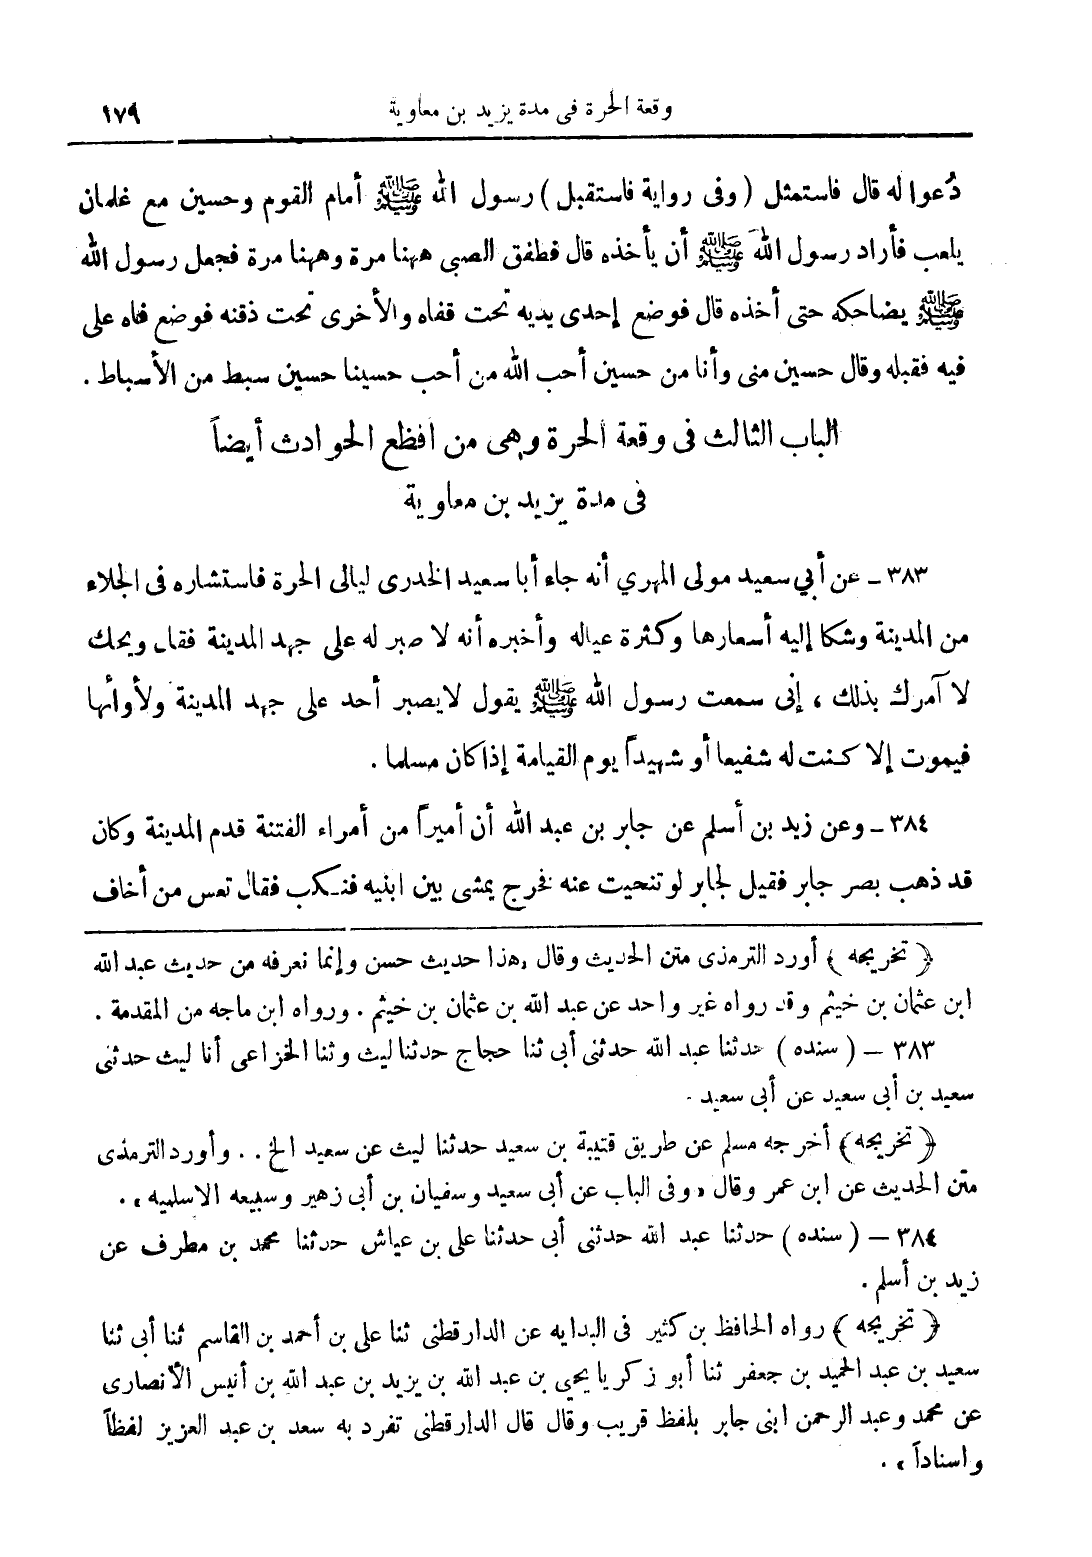 وقعة الحرة فى مدة يزيد بن معاوية ١٧٩
دُعوا له قال فاستمثل (وفى رواية فاستقبل) رسول الله ﷺ أمام القوم وحسين مع غلمان
يلعب فأراد رسول الله ﷺ أن يأخذه قال فطفق الصبى ههنا مرة وههنا مرة فجعل رسول الله
ﷺ يضاحكه حتى أخذه قال فوضع إحدى يديه تحت قفاه والأخرى تحت ذقنه فوضع فاه على
فيه فقبله وقال حسين منى وأنا من حسين أحب الله من أحب حسينا حسين سبط من الأسباط .
الباب الثالث فى وقعة الحرة وهى من افظع الحوادث أيضاً
فى مدة يزيد بن معاوية
٣٨٣ - عن أبي سعيد مولى المهري أنه جاء أبا سعيد الخدرى ليالى الحرة فاستشاره فى الجلاء
من المدينة وشكا إليه أسعارها وكثرة عياله وأخبره أنه لا صبر له على جهد المدينة فقال ويحك
لا آمرك بذلك ، إنى سمعت رسول الله ﷺ يقول لا يصبر أحد على جهد المدينة ولأوائها
فيموت إلا كنت له شفيعا أو شهيداً يوم القيامة إذا كان مسلما .
٣٨٤ - وعن زيد بن أسلم عن جابر بن عبد الله أن أميراً من أمراء الفتنة قدم المدينة وكان
قد ذهب بصر جابر فقيل لجابر لو تنحيت عنه فخرج يمشى بين ابنيه فنكب فقال تعس من أخاف
﴿ تخريجه ﴾ أورد الترمذى متن الحديث وقال «هذا حديث حسن وإنما نعرفه من حديث عبد الله
ابن عثمان بن خيثم وقد رواه غير واحد عن عبد الله بن عثمان بن خيثم . ورواه ابن ماجه من المقدمة .
٣٨٣ – ( سنده ) حدثنا عبد الله حدثنى أبي ثنا حجاج حدثنا ليث وثنا الخزاعى أنا ليث حدثنى
سعيد بن أبى سعيد عن أبى سعيد .
﴿ تخريجه ﴾ أخرجه مسلم عن طريق قتيبة بن سعيد حدثنا ليث عن سعيد الخ . . وأورد الترمذى
متن الحديث عن ابن عمر وقال «وفى الباب عن أبى سعيد وسفيان بن أبى زهير وسبيعه الاسلميه» .
٣٨٤ – ( سنده ) حدثنا عبد الله حدثنى أبى حدثنا على بن عياش حدثنا محمد بن مطرف عن
زيد بن أسلم .
﴿ تخريجه ﴾ رواه الحافظ بن كثير فى البدايه عن الدارقطنى ثنا على بن أحمد بن القاسم ثنا أبى ثنا
سعيد بن عبد الحميد بن جعفر ثنا أبو زكريا يحيى بن عبد الله بن يزيد بن عبد الله بن أنيس الأنصارى
عن محمد وعبد الرحمن ابنى جابر بلفظ قريب وقال قال الدارقطنى تفرد به سعد بن عبد العزيز لفظاً
واسناداً» .